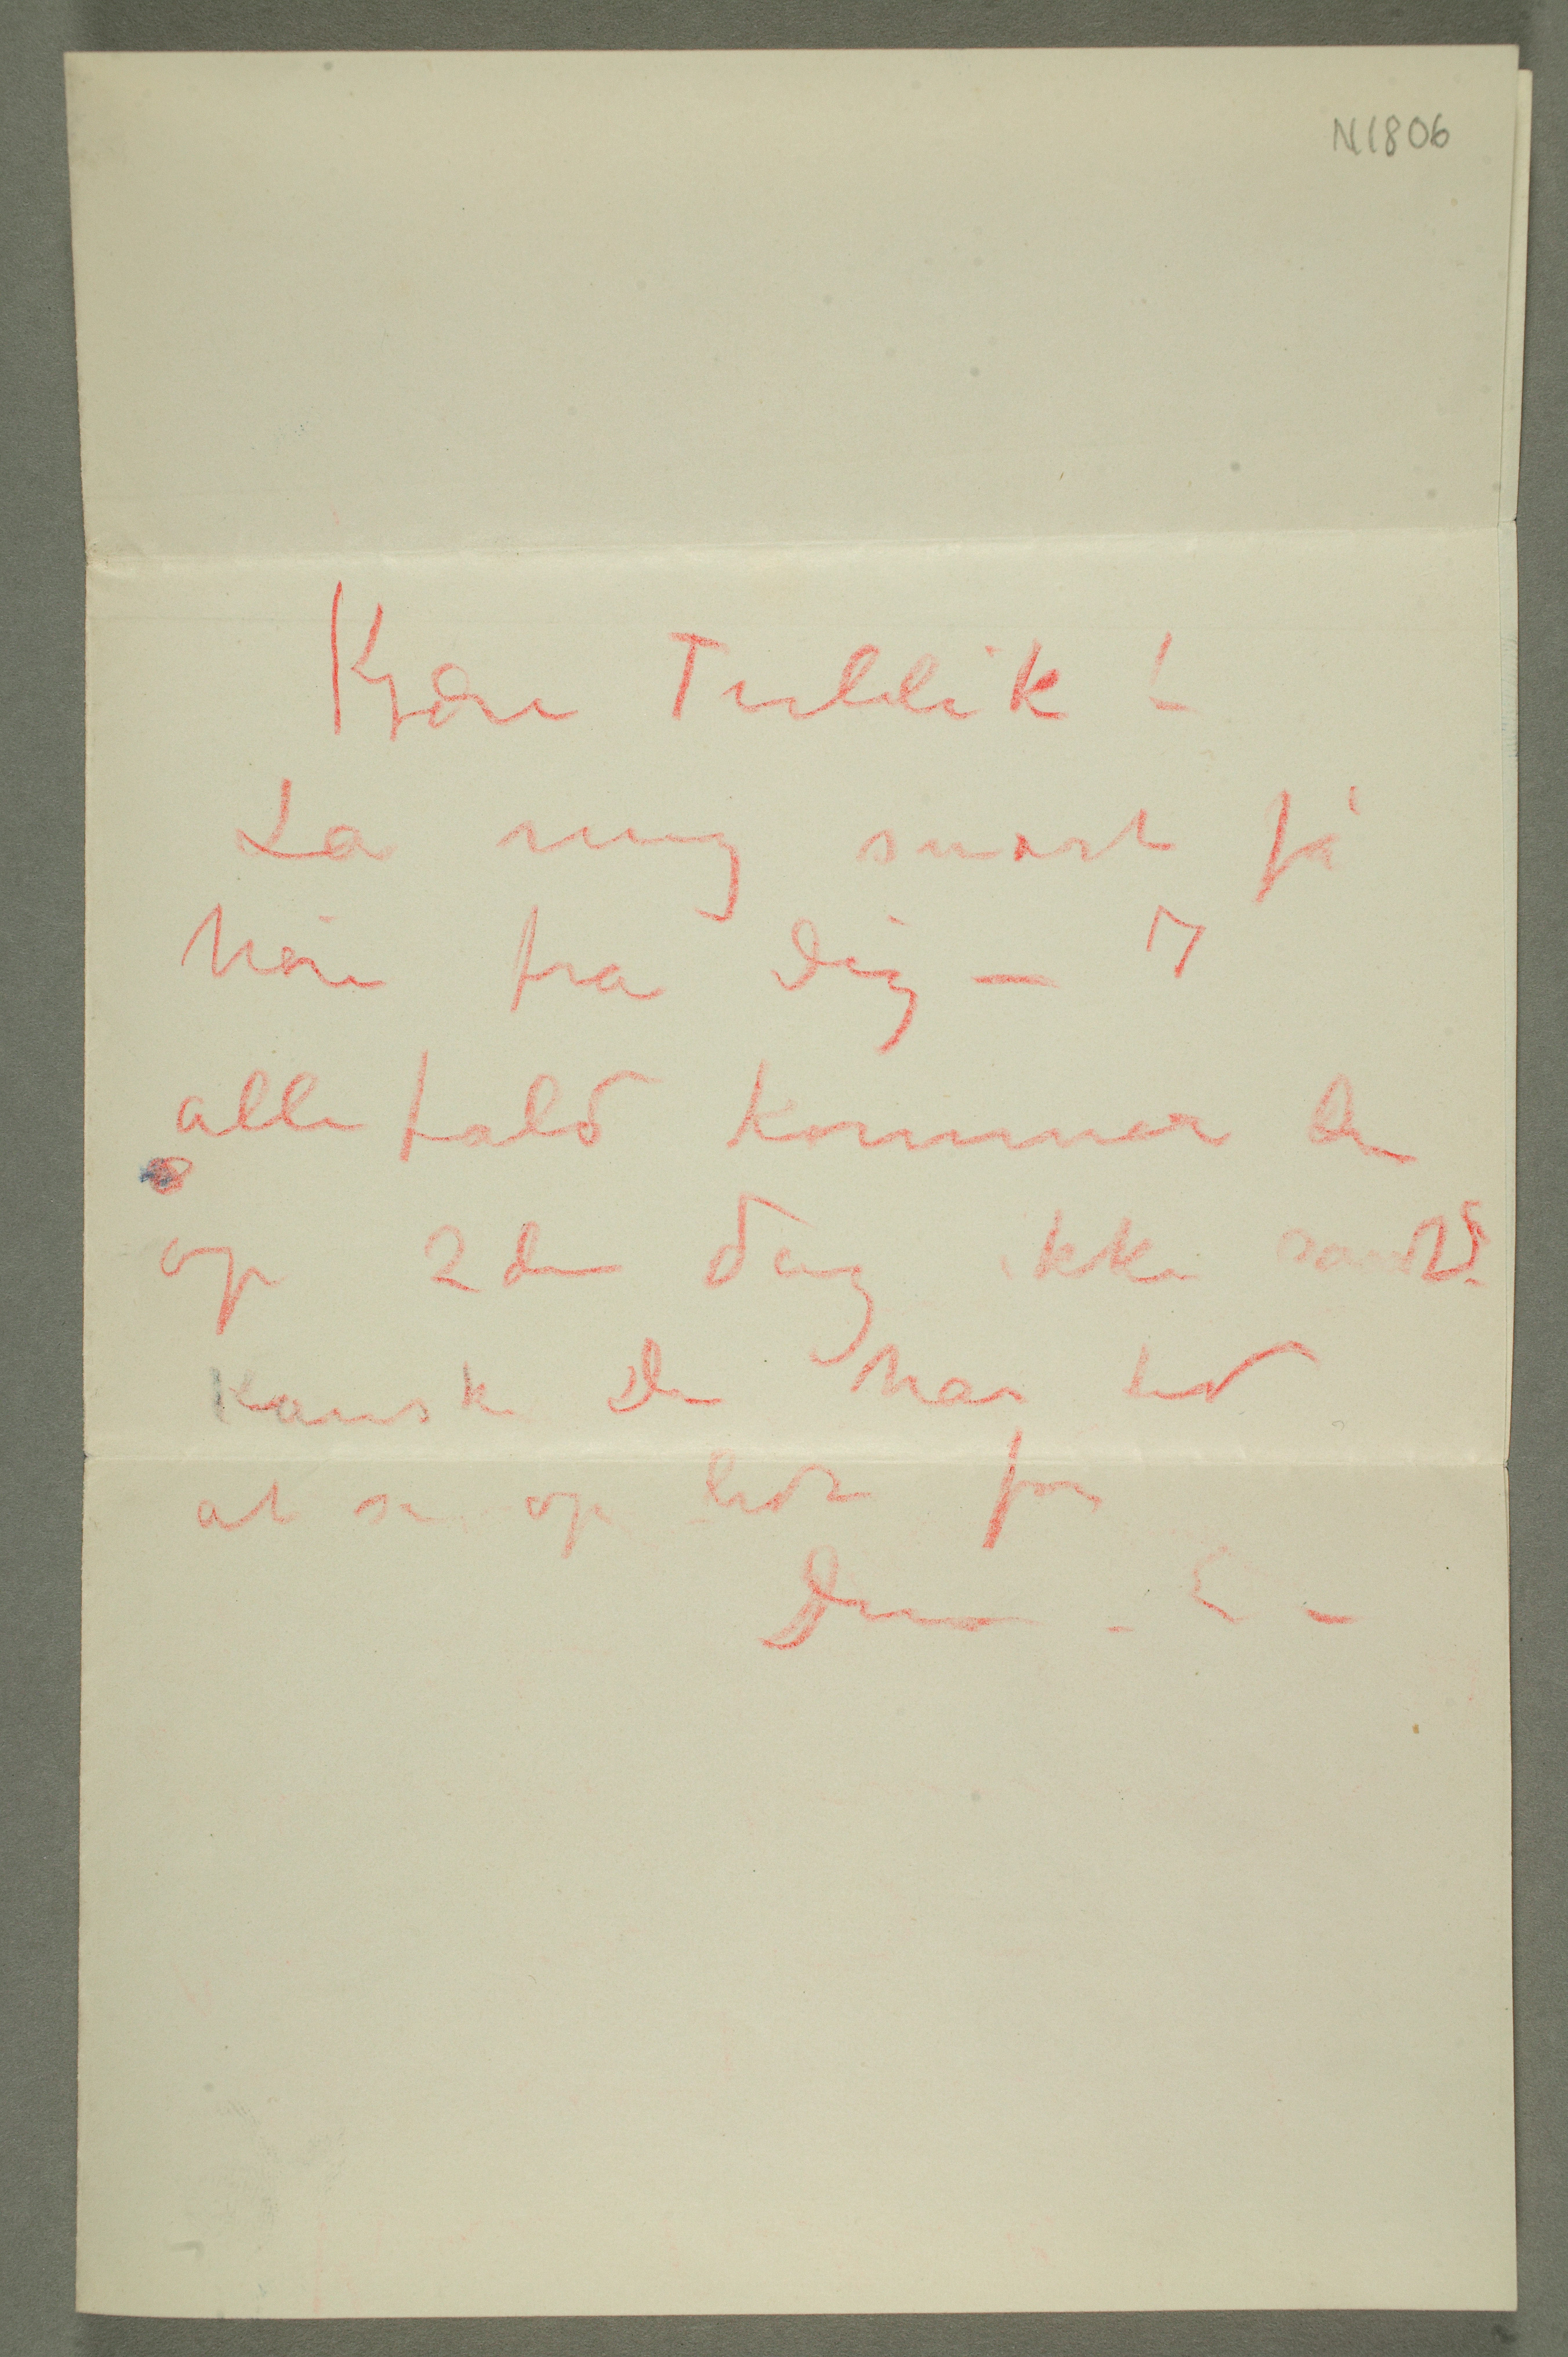 N1806
Kjære Tullik!
La mig snart få
høre fra Dig – I
alle fald kommer Du
op 2den dag ikke sandt?
Kanske Du har tid
at se op lidt før
Din – E –